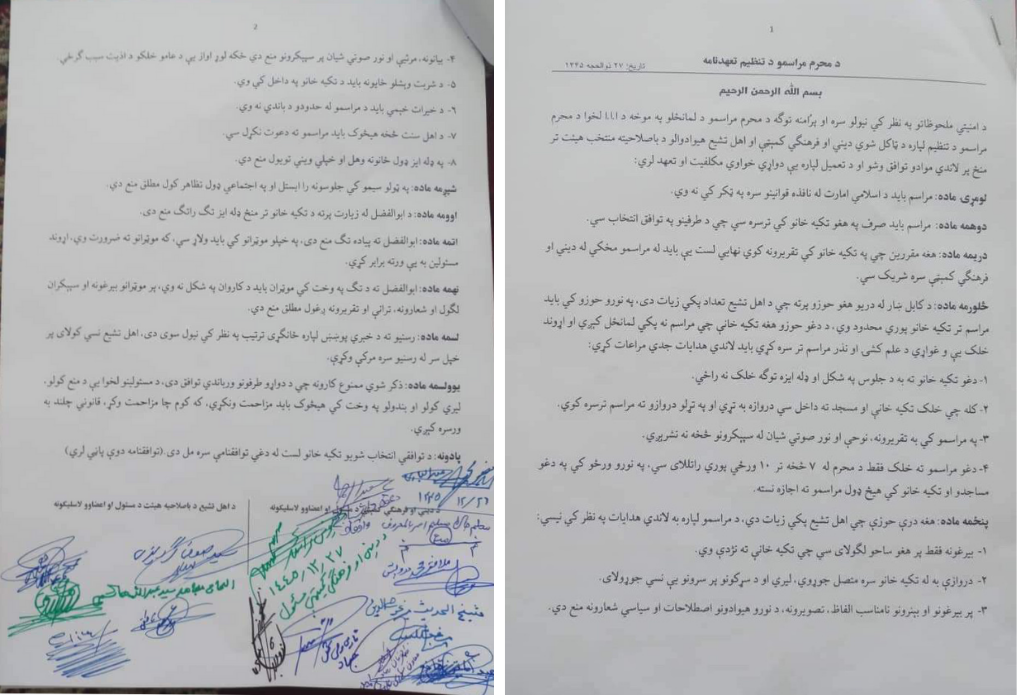 1
د محرم مراسمو د تنظیم تعهدنامه
تاریخ: ۲۷ ذوالحجه ۱۴۴۵
بسم الله الرحمن الرحیم
د امنیتي ملحوظاتو په نظر کې نیولو سره او پرامنه توګه د محرم مراسمو د لمانځلو په موخه د ا.ا.ا لخوا د محرم
مراسمو د تنظیم لپاره د ټاکل شوي دیني او فرهنګي کمېټې او اهل تشیع هیوادوالو د باصلاحیته منتخب هیئت تر
منځ پر لاندي موادو توافق وشو او د تعمیل لپاره یې دواړي خواوي مکلفیت او تعهد لري:
لومړی ماده: مراسم باید د اسلامي امارت له نافذه قوانینو سره په ټکر کې نه وي.
دوهمه ماده: مراسم باید صرف په هغو تکیه خانو کې ترسره سي چې د طرفینو په توافق انتخاب سي.
دریمه ماده: هغه مقررین چې په تکیه خانو کې تقریرونه کوي نهایي لست یې باید له مراسمو مخکې له دیني او
فرهنګي کمېټې سره شریک سي.
څلورمه ماده: د کابل ښار له دریو هغو حوزو پرته چې د اهل تشیع تعداد پکې زیات دی، په نورو حوزو کې باید
مراسم تر تکیه خانو پوري محدود وي، د دغو حوزو هغه تکیه خانې چې مراسم نه پکې لمانځل کیږي او اړوند
خلک یې و غواړي د علم کشی او نذر مراسم تر سره کړي باید لاندي هدایات جدي مراعات کړي:
۱- دغو تکیه خانو ته به د جلوس په شکل او ډله ایزه توګه خلک نه راځي.
۲- کله چې خلک تکیه خانې او مسجد ته داخل سي دروازه به تړي او په تړلو دروازو ته مراسم ترسره کوي.
۳- په مراسمو کې به تقریرونه، نوحې او نور صوتي شیان له سپیکرونو څخه نه نشریږي.
۴- دغو مراسمو ته خلک فقط د محرم له ۷ څخه تر ۱۰ ورځې پوري راتللای سي، په نورو ورځو کې په دغو
مساجدو او تکیه خانو کې هیڅ ډول مراسمو ته اجازه نسته.
پنځمه ماده: هغه درې حوزې چې اهل تشیع پکې زیات دي، د مراسمو لپاره به لاندي هدایات په نظر کې نیسي:
۱- بیرغونه فقط پر هغو ساحو لګولای سي چې تکیه خانې ته نژدې وي.
۲- دروازې به له تکیه خانو سره متصل جوړوي، لیري او د سړکونو پر سرونو یې نسي جوړولای.
۳- پر بیرغونو او بینرونو نامناسب الفاظ، تصویرونه، د نورو هیوادونو اصطلاحات او سیاسي شعارونه منع دي.
2
۴- بیانونه، مرثیې او نور صوتي شیان پر سپیکرونو منع دي ځکه لوړ اواز یې د عامو خلکو د اذیت سبب ګرځي.
۵- د شربت ویشلو ځایونه باید د تکیه خانو په داخل کې وي.
۶- د خیرات خیمې باید د مراسمو له حدودو د باندي نه وي.
۷- د اهل سنت څخه هیڅوک باید مراسمو ته دعوت نکړل سي.
۸- په ډله ایز ډول ځانونه وهل او خپلي ویني تویول منع دي.
شپږمه ماده: په ټولو سیمو کې جلوسونه را ایستل او په اجتماعي ډول تظاهر کول مطلق منع دي.
اوومه ماده: د ابوالفضل له زیارت پرته د تکیه خانو تر منځ ډله ایز تګ راتګ منع دی.
اتمه ماده: ابوالفضل ته پیاده تګ منع دی، په خپلو موټرانو کې باید ولاړ سي، که موټرانو ته ضرورت وي، اړوند
مسئولین به یې ورته برابر کړي.
نهمه ماده: ابوالفضل ته د تګ په وخت کې موټران باید د کاروان په شکل نه وي، پر موټرانو بیرغونه او سپیکران
لګول او شعارونه، ترانې او تقریرونه ږغول مطلق منع دي.
لسمه ماده: رسنیو ته د خبري پوښښ لپاره ځانګړی ترتیب په نظر کې نیول سوی دی، اهل تشیع نسي کولای پر
خپل سر له رسنیو سره مرکې وکړي.
یوولسمه ماده: ذکر شوي ممنوع کارونه چې د دواړو طرفونو ورباندي توافق دی، د مسئولینو لخوا یې د منع کولو،
لیري کولو او بندولو په وخت کې هیڅوک باید مزاحمت ونکړي، که کوم چا مزاحمت وکړ، قانوني چلند به
ورسره کیږي.
یادونه: د توافقي انتخاب شویو تکیه خانو لست له دغې توافقنامې سره مل دی. (توافقنامه دوې پاڼي لري)
د دیني او فرهنګي کمېټې د مسئول او اعضاوو لاسلیکونه
د اهل تشیع د باصلاحیته هیئت د مسئول او اعضاوو لاسلیکونه
۱۴۴۵,۱۲,۲۷
د دیني او فرهنګي کمېټې مسئول